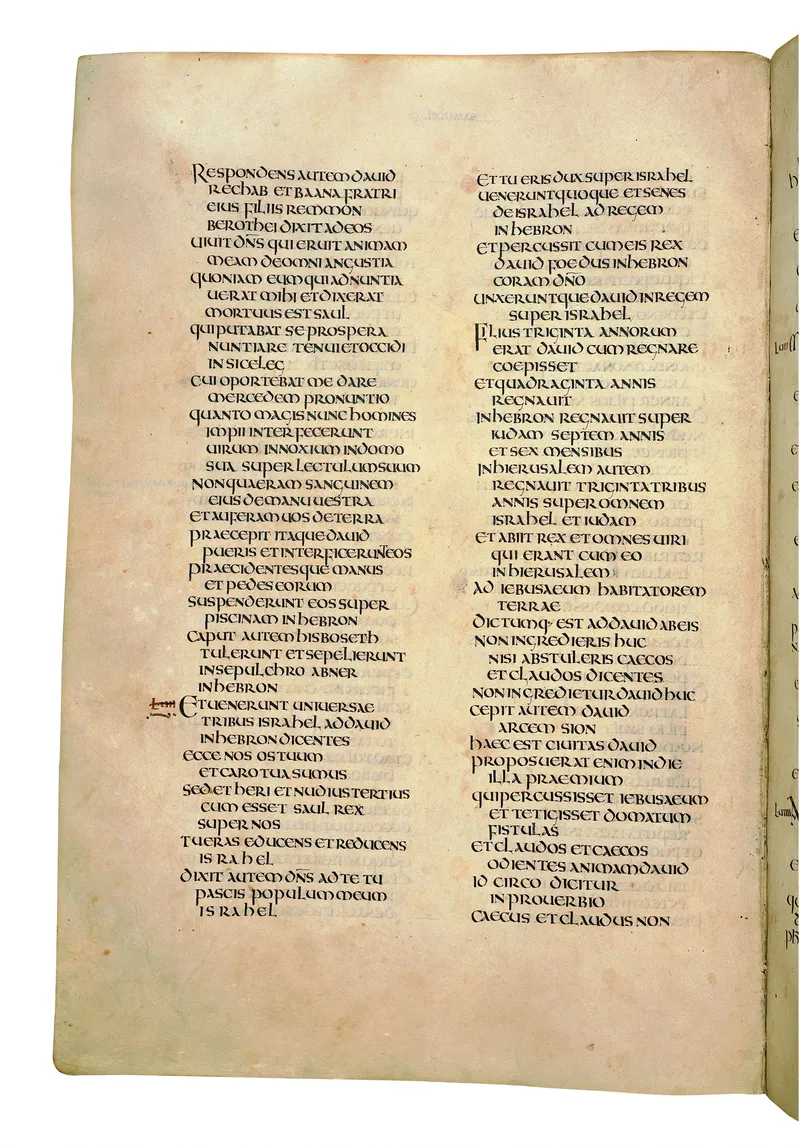 Respondens autem dauid
rechab et baana fratri
eius filiis remmon
berothei dixit ad eos
uiuit dñs qui eruit animam
meam de omni angustia
quoniam eum qui adnuntia
uerat mihi et dixerat
mortuus est saul
qui putabat se prospera
nuntiare tenui et occidi
in siceleg
cui oportebat me dare
mercedem pro nuntio
quanto magis nunc homines
impii interfecerunt
uirum innoxium in domo
sua super lectulum suum
non quaeram sanguinem
eius de manu uestra
et auferam uos de terra
praecepit itaque dauid
pueris et interficeruñ eos
praecidentesque manus
et pedes eorum
suspenderunt eos super
piscinam in hebron
caput autem hisboseth
tulerunt et sepelierunt
in sepulchro abner
in hebron
Et uenerunt uniuersae
tribus israhel ad dauid
in hebron dicentes
ecce nos os tuum
et caro tua sumus
sed et heri et nudius tertius
cum esset saul rex
super nos
tu eras educens et reducens
israhel
dixit autem dñs ad te tu
pascis populum meum
israhel
et tu eris dux super israhel
uenerunt quoque et senes
de israhel ad regem
in hebron
et percussit cum eis rex
dauid foedus in hebron
coram dño
unxeruntque dauid in regem
super israhel
Filius triginta annorum
erat dauid cum regnare
coepisset
et quadraginta annis
regnauit
in hebron regnauit super
iudam septem annis
et sex mensibus
in hierusalem autem
regnauit triginta tribus
annis super omnem
israhel et iudam
et abiit rex et omnes uiri
qui erant cum eo
in hierusalem
ad iebusaeum habitatorem
terrae
dictumq· est ad dauid ab eis
non ingredieris huc
nisi abstuleris caecos
et claudos dicentes
non ingredietur dauid huc
cepit autem dauid
arcem sion
haec est ciuitas dauid
proposuerat enim in die
illa praemium
qui percussisset iebusaeum
et tetigisset domatum
fistulas
et claudos et caecos
odientes animam dauid
idcirco dicitur
in prouerbio
caecus et claudus non